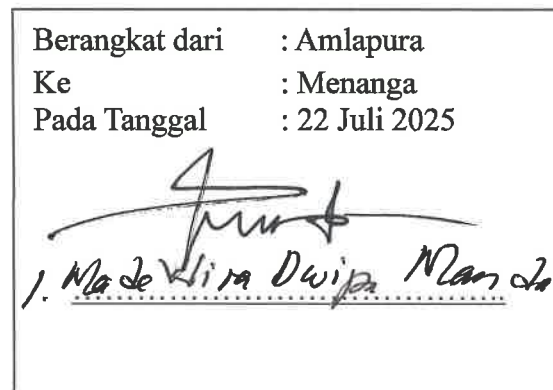 Berangkat dari : Amlapura
Ke : Menanga
Pada Tanggal : 22 Juli 2025
I. Made Wira Dwipa Manda